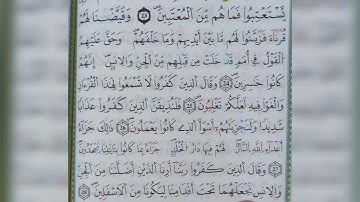 يَّسْتَعْتِبُواْ فَمَا هُم مِّنَ ٱلْمُعْتَبِينَ ۞ وَقَيَّضْنَا لَهُمْ
قُرَنَآءَ فَزَيَّنُواْ لَهُم مَّا بَيْنَ أَيْدِيهِمْ وَمَا خَلْفَهُمْ وَحَقَّ عَلَيْهِمُ
ٱلْقَوْلُ فِے أُمَمٍ قَدْ خَلَتْ مِن قَبْلِهِم مِّنَ ٱلْجِنِّ وَٱلْإِنسِ إِنَّهُمْ
كَانُواْ خَٰسِرِينَ ۞ وَقَالَ ٱلذِينَ كَفَرُواْ لَا تَسْمَعُواْ لِهَٰذَا ٱلْقُرْءَانِ
وَٱلْغَوْاْ فِيهِ لَعَلَّكُمْ تَغْلِبُونَ ۞ فَلَنُذِيقَنَّ ٱلذِينَ كَفَرُواْ عَذَابًا
شَدِيدًا وَلَنَجْزِيَنَّهُمْ أَسْوَأَ ٱلذِے كَانُواْ يَعْمَلُونَ ۞ ذَٰلِكَ جَزَآءُ
لَهُمْ فِيهَا دَارُ ٱلْخُلْدِ جَزَآءًۢ بِمَا كَانُواْ بِـَٔايَٰتِنَا يَجْحَدُونَ
۞ وَقَالَ ٱلذِينَ كَفَرُواْ رَبَّنَآ أَرِنَا ٱلذَيْنِ أَضَلَّٰنَا مِنَ ٱلْجِنِّ
وَٱلْإِنسِ نَجْعَلْهُمَا تَحْتَ أَقْدَامِنَا لِيَكُونَا مِنَ ٱلْأَسْفَلِينَ ۞